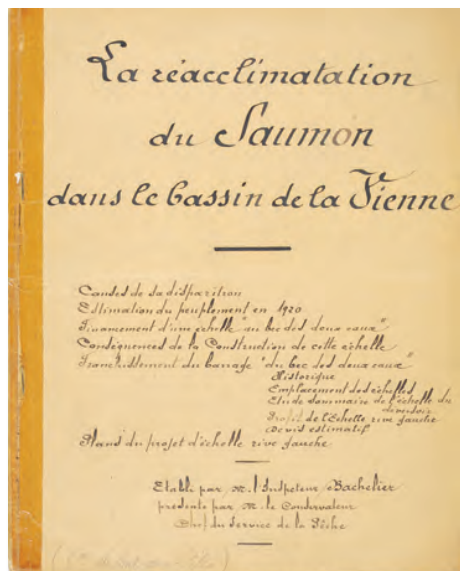 La réacclimatation
du Saumon
dans le bassin de la Vienne
Causes de sa disparition
Estimation du peuplement en 1920
Financement d'une échelle "au bec des deux eaux"
Conséquences de la Construction de cette échelle
Franchissement du barrage "du bec des deux eaux"
Historique
Emplacement des échelles
Etude sommaire de l'échelle du
Profil de l'échelle rive gauche
Devis estimatif
Plans du projet d'échelle rive gauche
Etabli par M. l'Inspecteur Bachelier
présenté par M. le Conservateur
Chef du Service de la Pêche